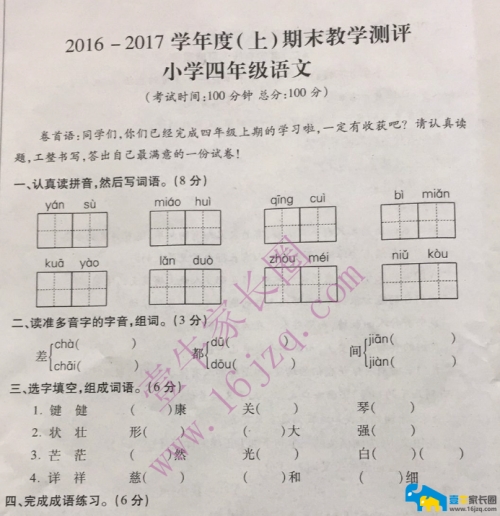 2016－2017 学年度（上）期末教学测评
小学四年级语文
（考试时间：100 分钟 总分：100 分）
卷首语：同学们，你们已经完成四年级上期的学习啦，一定有收获吧？请认真读
题，工整书写，答出自己最满意的一份试卷！
一、认真读拼音，然后写词语。（8 分）
yán sù miáo huì qīng cuì bì miǎn
kuā yào lǎn duò zhòu méi niǔ kòu
二、读准多音字的字音，组词。（3 分）
差{chà（ ） chāi（ ） 都{dū（ ） dōu（ ） 间{jiān（ ） jiàn（ ）
三、选字填空，组成词语。（6 分）
1. 健 键 （ ）康 关（ ） 琴（ ）
2. 状 壮 形（ ） （ ）大 强（ ）
3. 芒 茫 （ ）然 光（ ） 白（ ）（ ）
4. 详 祥 慈（ ） （ ）和 （ ）细
四、完成成语练习。（6 分）
壹牛家长圈
www.16jzq.com
壹牛家长圈
www.16jzq.com